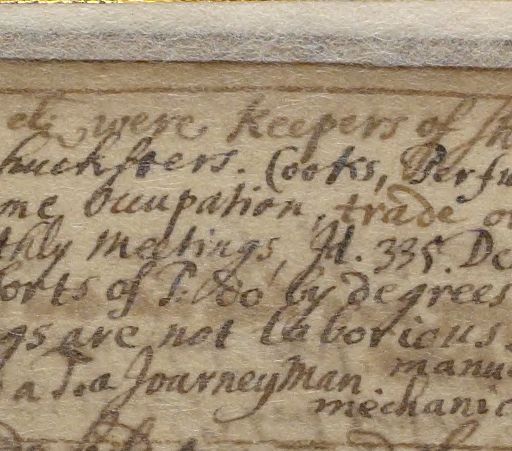 were keepers of
huchsters. Cooks, Perfu
me Occupation, trade o
thly meetings, Id. 335. De
orts of by degrees
gs are not laborious
a Journeyman manu
mechanic